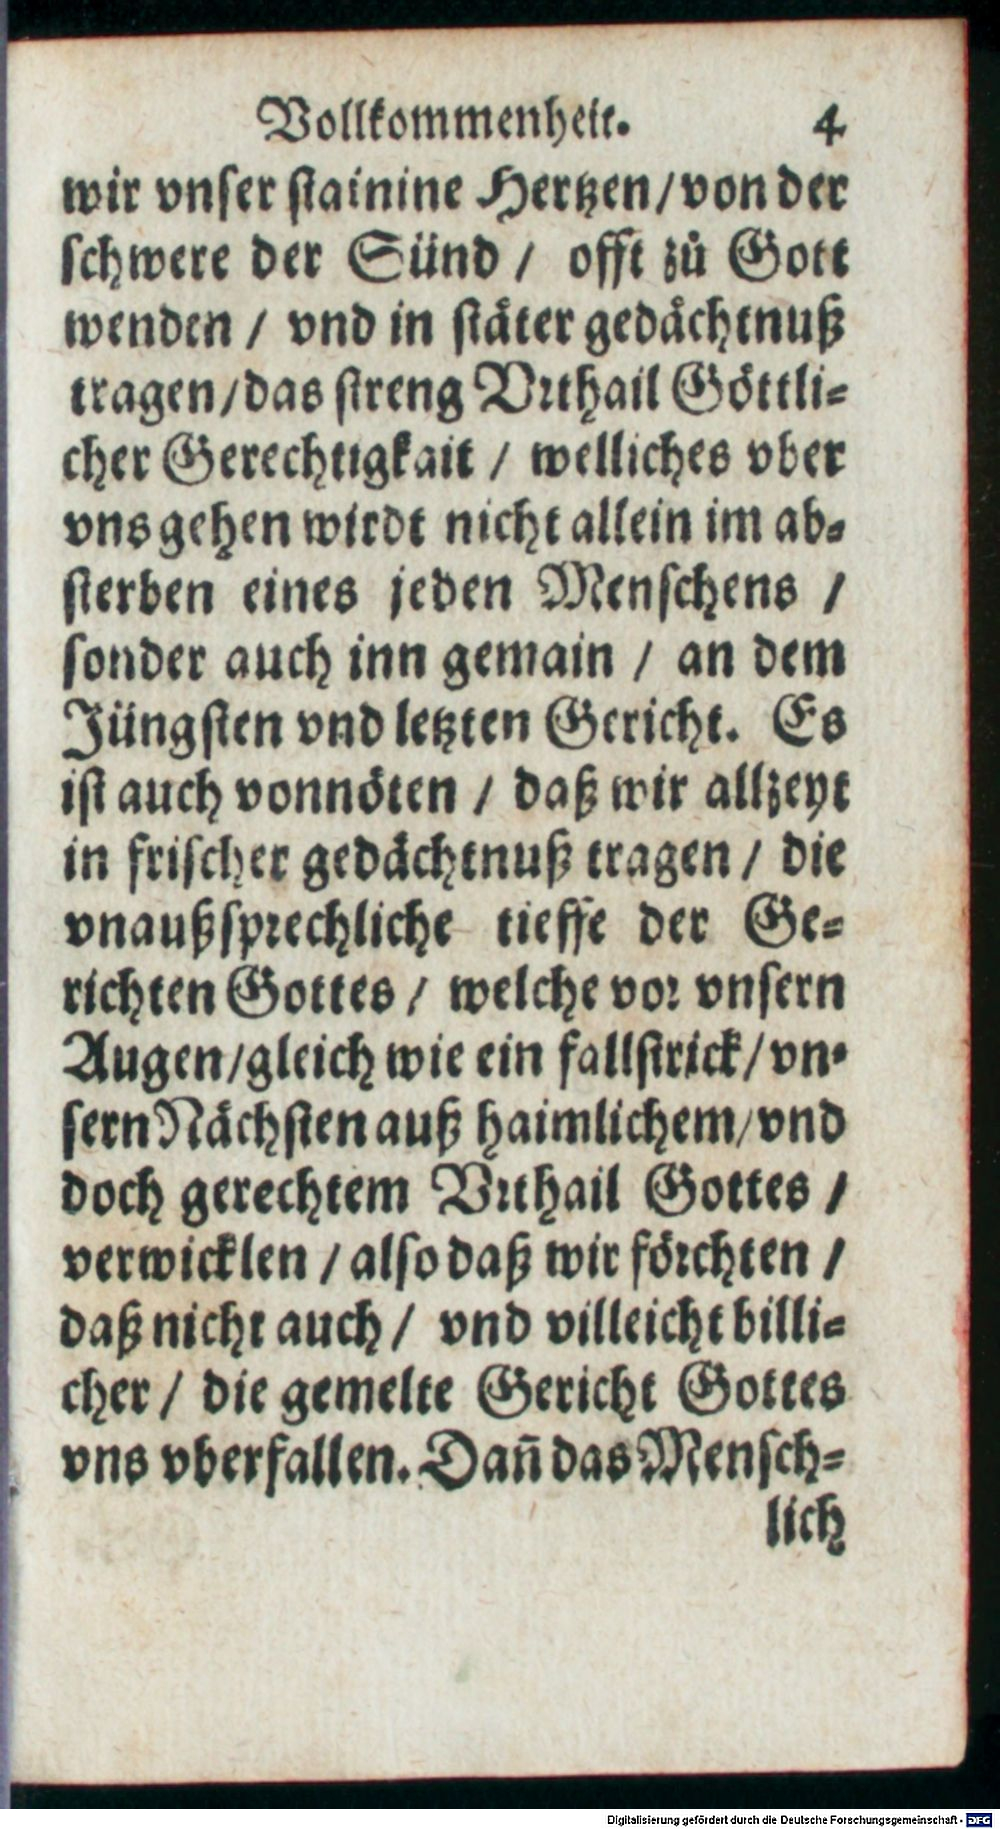 Vollkommenheit. 4
wir vnser stainine Hertzen/von der
schwere der Sünd / offt zů Gott
wenden / vnd in stäter gedächtnuß
tragen/das streng Vrthail Göttli-
cher Gerechtigkait / welliches vber
vns gehen wirdt nicht allein im ab-
sterben eines jeden Menschens /
sonder auch inn gemain / an dem
Jüngsten vnd letzten Gericht. Es
ist auch vonnöten / daß wir allzeyt
in frischer gedächtnuß tragen / die
vnaußsprechliche tieffe der Ge-
richten Gottes / welche vor vnsern
Augen/gleich wie ein fallstrick/vn-
sern Nächsten auß haimlichem/vnd
doch gerechtem Vrthail Gottes /
verwicklen / also daß wir förchten /
daß nicht auch / vnd villeicht billi-
cher / die gemelte Gericht Gottes
vns vberfallen. Dañ das Mensch-
lich
Digitalisierung gefördert durch die Deutsche Forschungsgemeinschaft - DFG